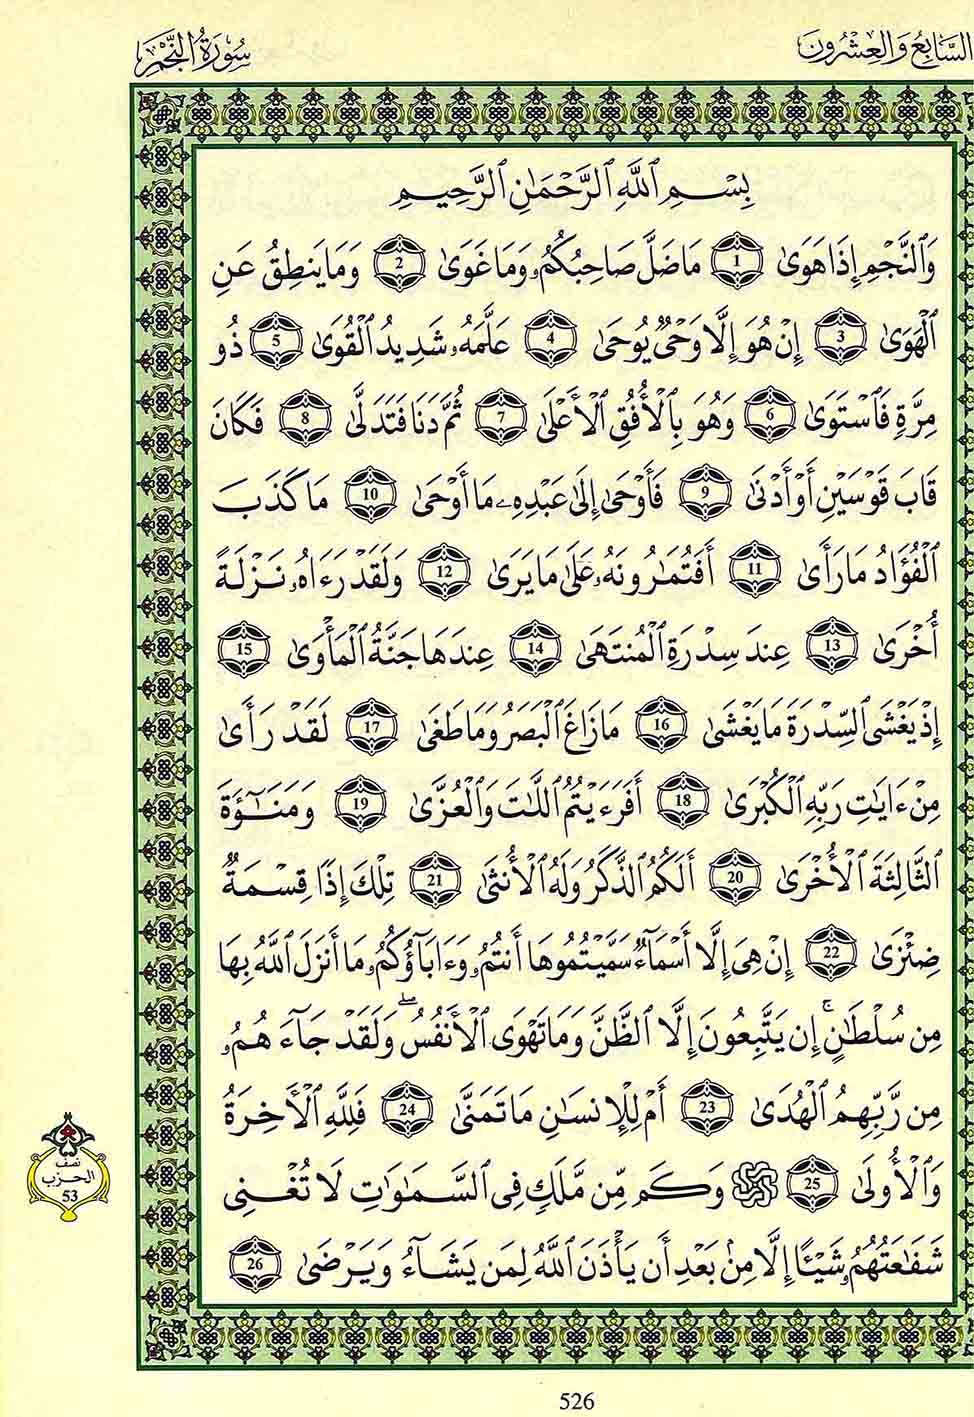 السَّابِعُ وَالعِشْرُونَ
سُورَةُ النَّجْمِ
بِسْمِ ٱللَّهِ ٱلرَّحْمَـٰنِ ٱلرَّحِيمِ
وَٱلنَّجْمِ إِذَا هَوَىٰ 1 مَا ضَلَّ صَاحِبُكُمْ وَمَا غَوَىٰ 2 وَمَا يَنطِقُ عَنِ
ٱلْهَوَىٰ 3 إِنْ هُوَ إِلَّا وَحْىٌ يُوحَىٰ 4 عَلَّمَهُۥ شَدِيدُ ٱلْقُوَىٰ 5 ذُو
مِرَّةٍ فَٱسْتَوَىٰ 6 وَهُوَ بِٱلْأُفُقِ ٱلْأَعْلَىٰ 7 ثُمَّ دَنَا فَتَدَلَّىٰ 8 فَكَانَ
قَابَ قَوْسَيْنِ أَوْ أَدْنَىٰ 9 فَأَوْحَىٰ إِلَىٰ عَبْدِهِۦ مَا أَوْحَىٰ 10 مَا كَذَبَ
ٱلْفُؤَادُ مَا رَأَىٰ 11 أَفَتُمَـٰرُونَهُۥ عَلَىٰ مَا يَرَىٰ 12 وَلَقَدْ رَءَاهُ نَزْلَةً
أُخْرَىٰ 13 عِندَ سِدْرَةِ ٱلْمُنتَهَىٰ 14 عِندَهَا جَنَّةُ ٱلْمَأْوَىٰ 15
إِذْ يَغْشَى ٱلسِّدْرَةَ مَا يَغْشَىٰ 16 مَا زَاغَ ٱلْبَصَرُ وَمَا طَغَىٰ 17 لَقَدْ رَأَىٰ
مِنْ ءَايَـٰتِ رَبِّهِ ٱلْكُبْرَىٰ 18 أَفَرَءَيْتُمُ ٱللَّـٰتَ وَٱلْعُزَّىٰ 19 وَمَنَوٰةَ
ٱلثَّالِثَةَ ٱلْأُخْرَىٰ 20 أَلَكُمُ ٱلذَّكَرُ وَلَهُ ٱلْأُنثَىٰ 21 تِلْكَ إِذًا قِسْمَةٌ
ضِئْزَىٰ 22 إِنْ هِىَ إِلَّا أَسْمَآءٌ سَمَّيْتُمُوهَا أَنتُمْ وَءَابَآؤُكُمُۥ مَا أَنزَلَ ٱللَّهُ بِهَا
مِن سُلْطَـٰنٍ ۚ إِن يَتَّبِعُونَ إِلَّا ٱلظَّنَّ وَمَا تَهْوَى ٱلْأَنفُسُ ۖ وَلَقَدْ جَآءَهُمُۥ
مِن رَّبِّهِمُ ٱلْهُدَىٰ 23 أَمْ لِلْإِنسَـٰنِ مَا تَمَنَّىٰ 24 فَلِلَّهِ ٱلْأَخِرَةُ
وَٱلْأُولَىٰ 25 وَكَم مِّن مَّلَكٍ فِى ٱلسَّمَـٰوَٰتِ لَا تُغْنِى
شَفَـٰعَتُهُمُۥ شَيْئًا إِلَّا مِنۢ بَعْدِ أَن يَأْذَنَ ٱللَّهُ لِمَن يَشَآءُ وَيَرْضَىٰ 26
نصف
الحزب
53
526